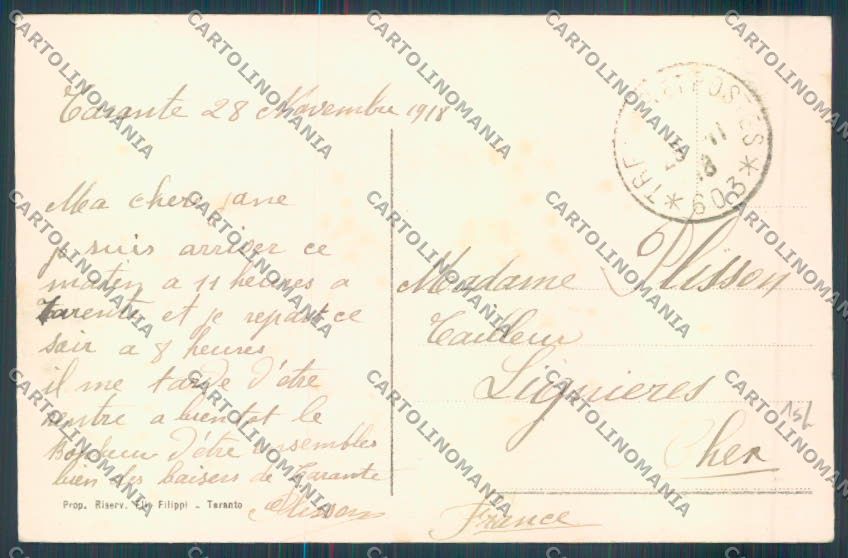 Tarante 28 Novembre 1918
Ma chere jane
je suis arriver ce
matin a 11 heures a
Tarente et je repart ce
soir a 8 heures
il me tarde d'être
rentre a bientot le
bonheur d'être ensembles
bien des baisers de Tarante
Plisson
Prop. Riserv. Filippi - Taranto
TRE POSTES
* 603 *
Madame Plisson
Tailleur
Lignieres
Cher
France
CARTOLINOMANIA